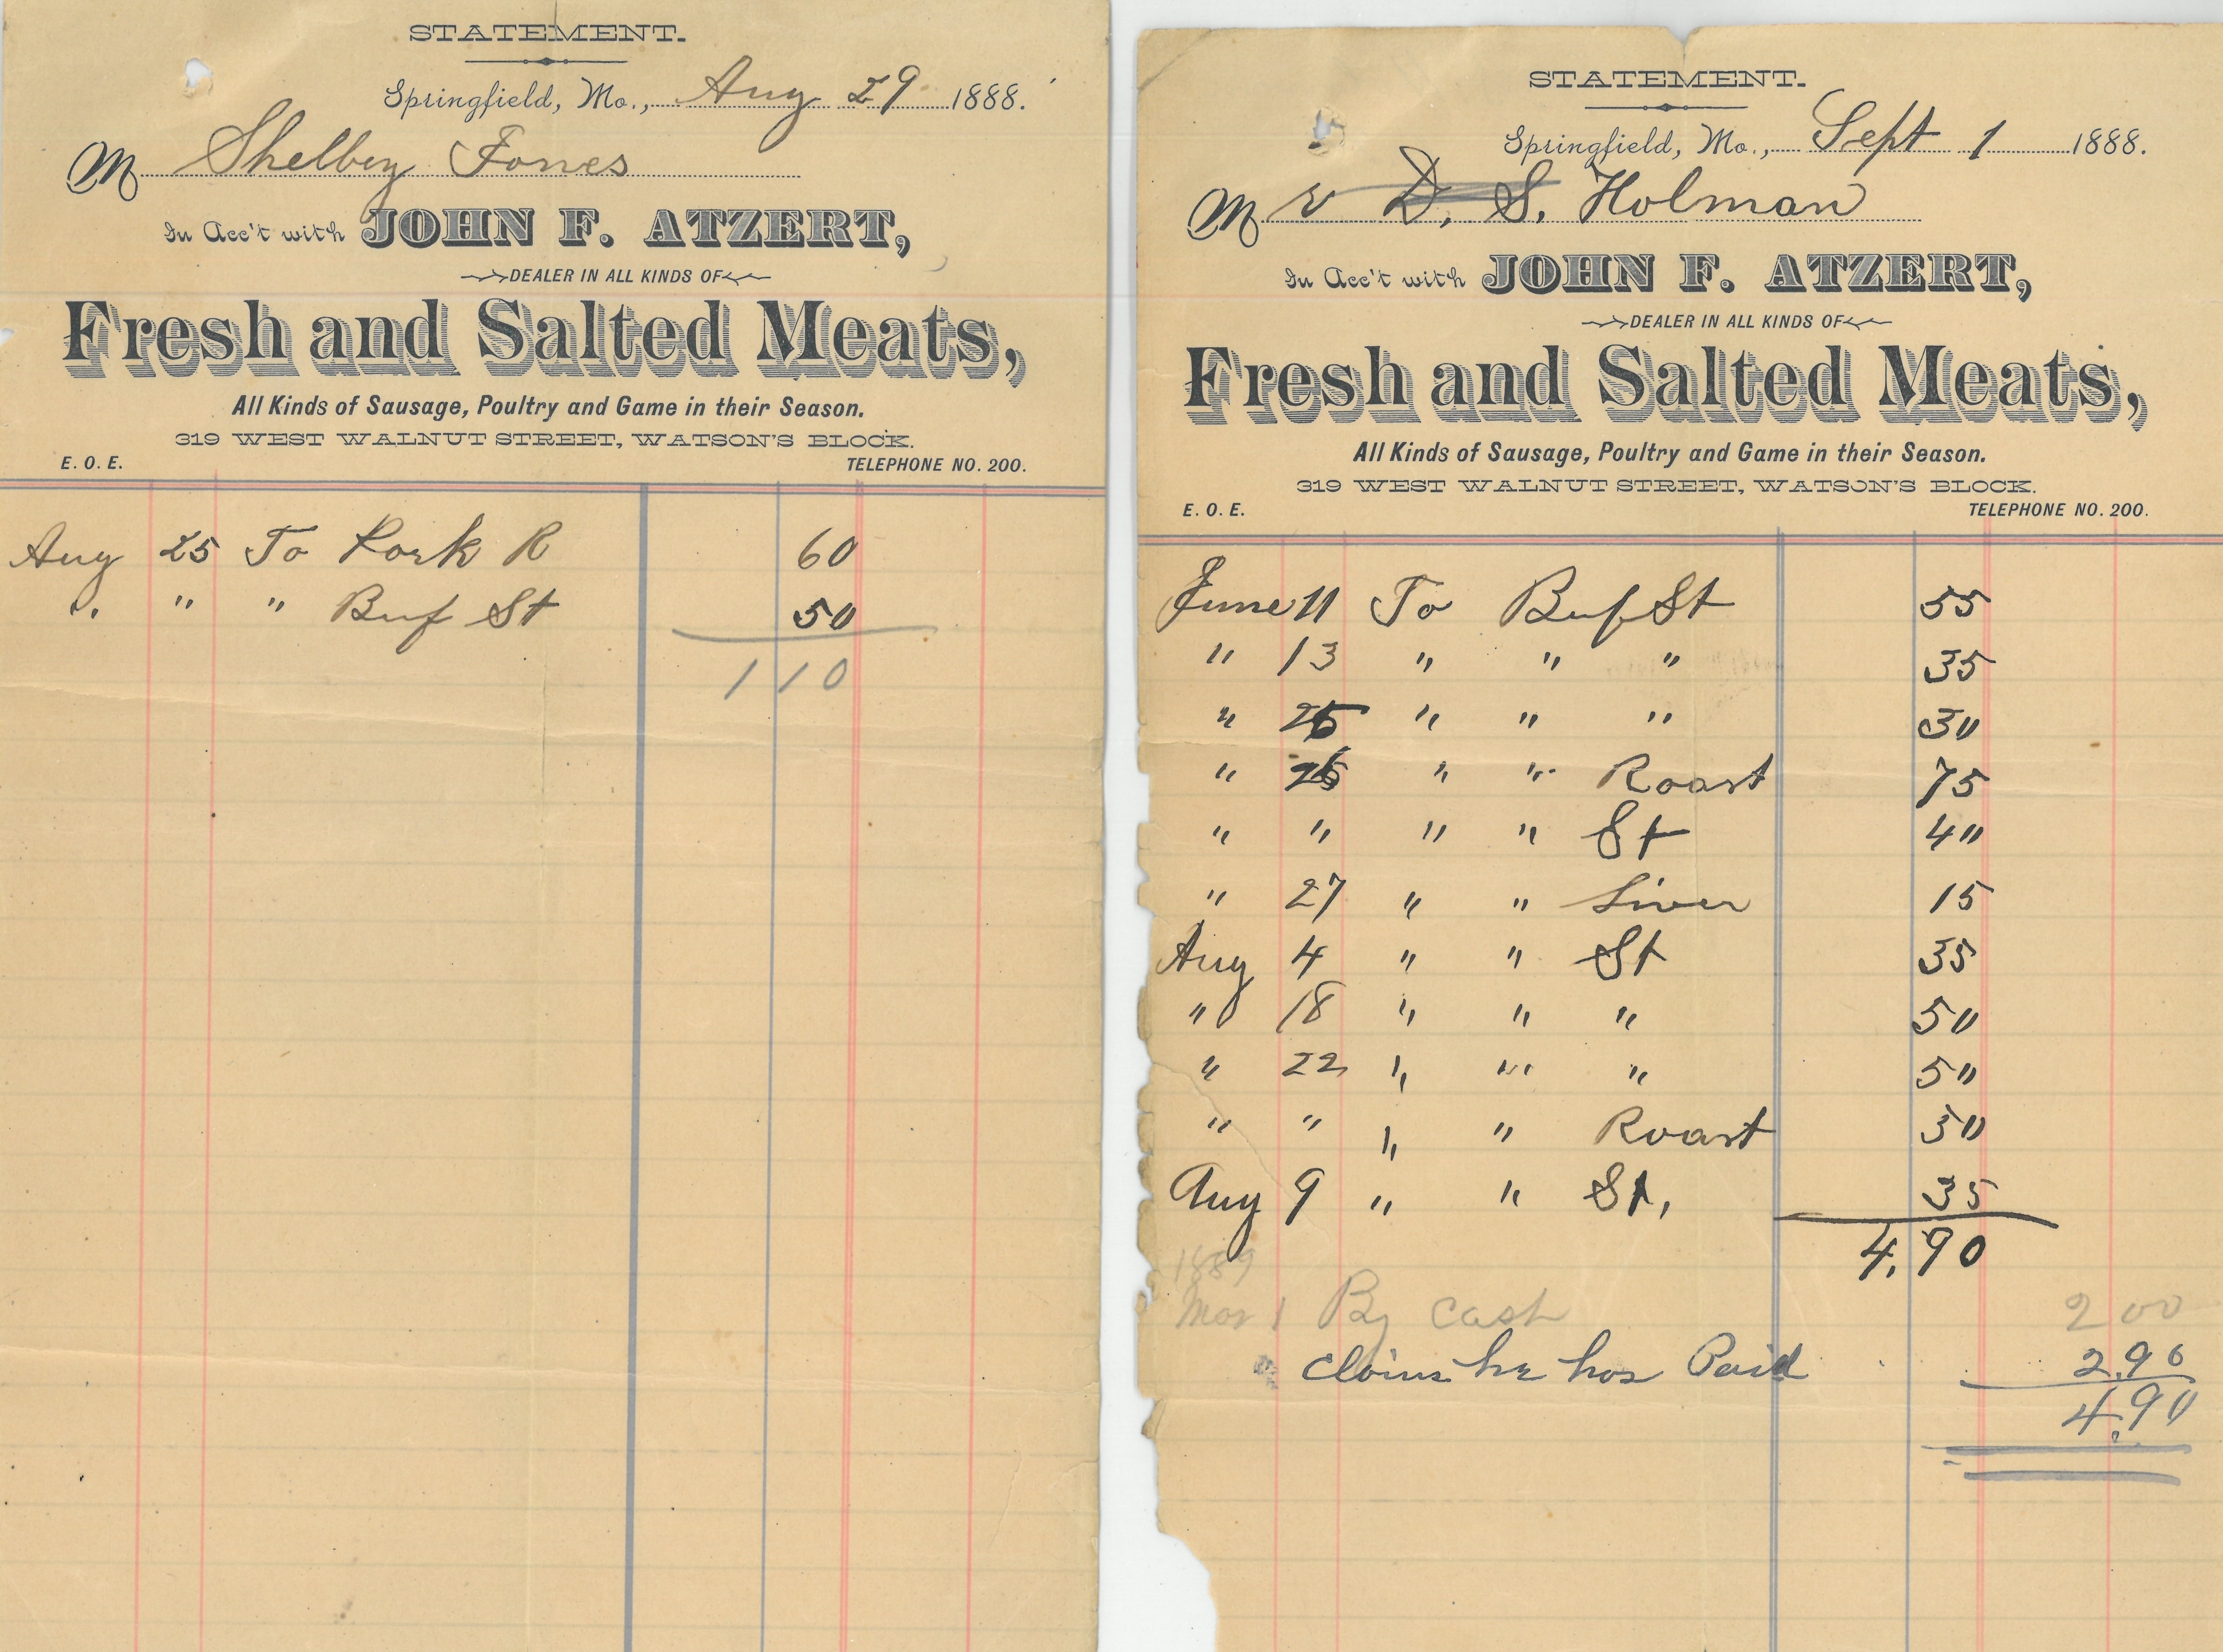 STATEMENT.
Springfield, Mo., Aug 29 1888.
M Shelby Fones
In Acc't with JOHN F. ATZERT,
DEALER IN ALL KINDS OF
Fresh and Salted Meats,
All Kinds of Sausage, Poultry and Game in their Season.
319 WEST WALNUT STREET, WATSON'S BLOCK.
E. O. E. TELEPHONE NO. 200.
Aug 25 To Pork R 60
" " " Beef St 50
1 10
STATEMENT.
Springfield, Mo., Sept 1 1888.
M r D. S. Holman
In Acc't with JOHN F. ATZERT,
DEALER IN ALL KINDS OF
Fresh and Salted Meats,
All Kinds of Sausage, Poultry and Game in their Season.
319 WEST WALNUT STREET, WATSON'S BLOCK.
E. O. E. TELEPHONE NO. 200.
June 11 To Beef St 55
" 13 " " " 35
" 25 " " " 50
" 26 " " Roast 75
" " " " St 40
" 27 " " Liver 15
Aug 4 " " St 35
" 18 " " " 50
" 22 " " " 50
" " " " Roast 50
Aug 9 " " St, 35
4.90
1889
Mar 1 By Cash 2 00
Claims he has Paid 2.90
4.90